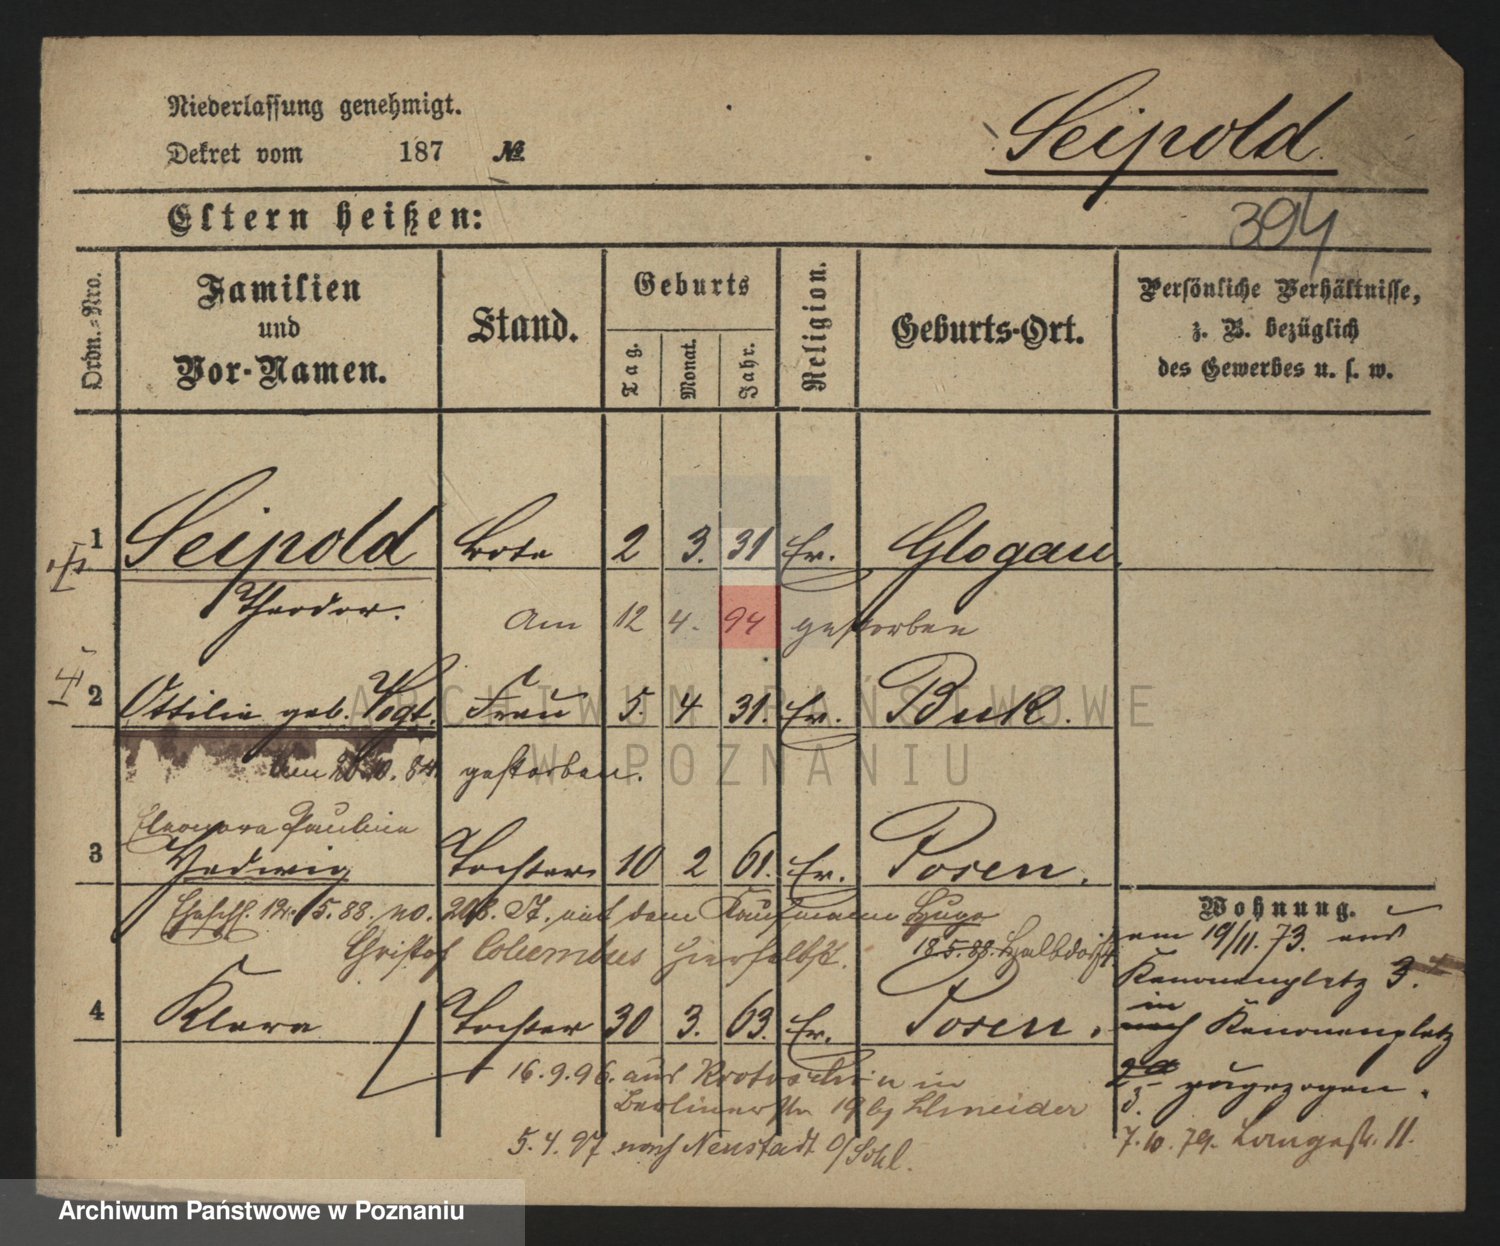 Niederlassung genehmigt.
Dekret vom 187 №
Seipold
Eltern heißen:
394
Ordn.-Nro.
Familien
und
Vor-Namen.
Stand.
Geburts
Tag.
Monat.
Jahr.
Religion.
Geburts-Ort.
Persönliche Verhältnisse,
z. B. bezüglich
des Gewerbes u. s. w.
1 Seipold Bote 2 3. 31 Ev. Glogau.
Theodor.
Am 12 4. 94 gestorben
2 Ottilie geb. Vogt. Frau 5. 4 31. Ev. Buk.
ARCHIWUM PAŃSTWOWE
W POZNANIU
am 20.10.84. gestorben.
Eleonora Pauline
3 Hedwig Tochter 10 2 61. Ev. Posen.
Wohnung.
Eheschl. 12. 5. 88. no. 208. St. mit dem Kaufmann Hugo
Christof Columbus hierselbst.
18.5.88. Halbdorfst.
am 19/11. 73. aus
Kanonenplatz 3.
4 Klara Tochter 30 3. 63. Ev. Posen.
in
nach Kanonenplatz
zugezogen.
16.9.96. aus Krotoschin in
Berlinerstr 19 by Schneider
5.4.97 nach Neustadt
7.10.79. Langestr. 11.
Archiwum Państwowe w Poznaniu